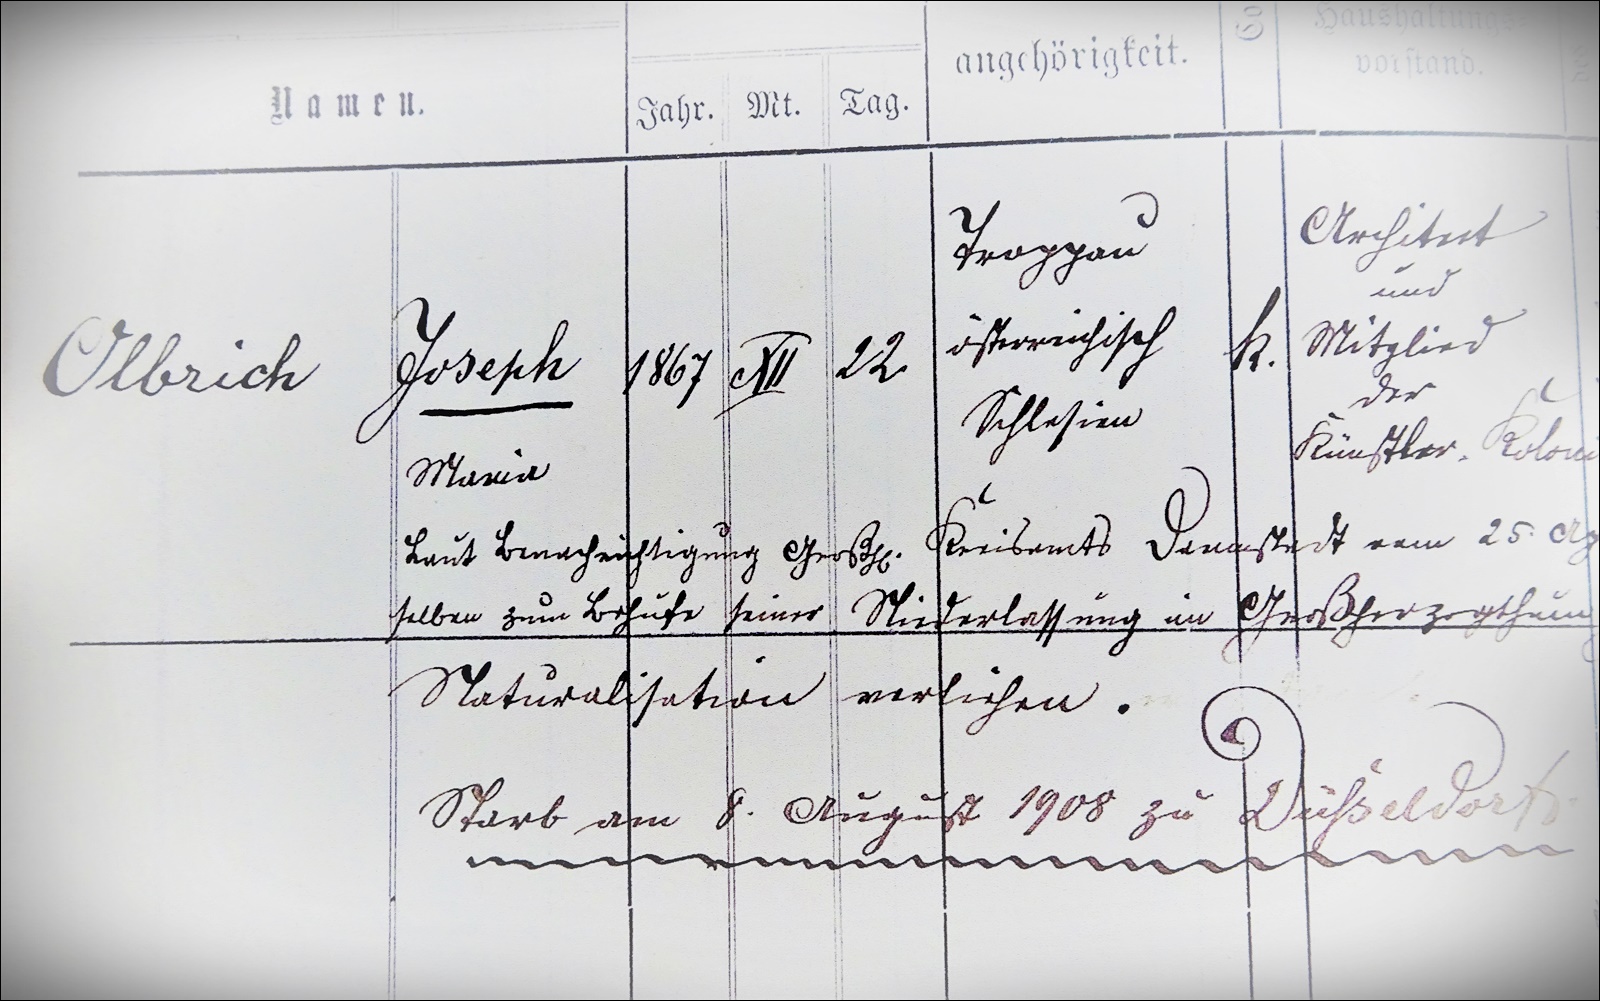 Haushaltungs-
angehörigkeit.
vorstand.
Namen.
Jahr. Mt. Tag.
Troppau
Architect
und
Olbrich Joseph 1867 XII 22. österreichisch k. Mitglied
der
Schlesien
Künstler-Koloni
Maria
Laut Benachrichtigung Großh. Kreisamts Darmstadt vom 25. Ap
selben zum Behufe seiner Niederlassung im Großherzogthum
Naturalisation verliehen.
Starb am 8. August 1908 zu Düsseldorf.